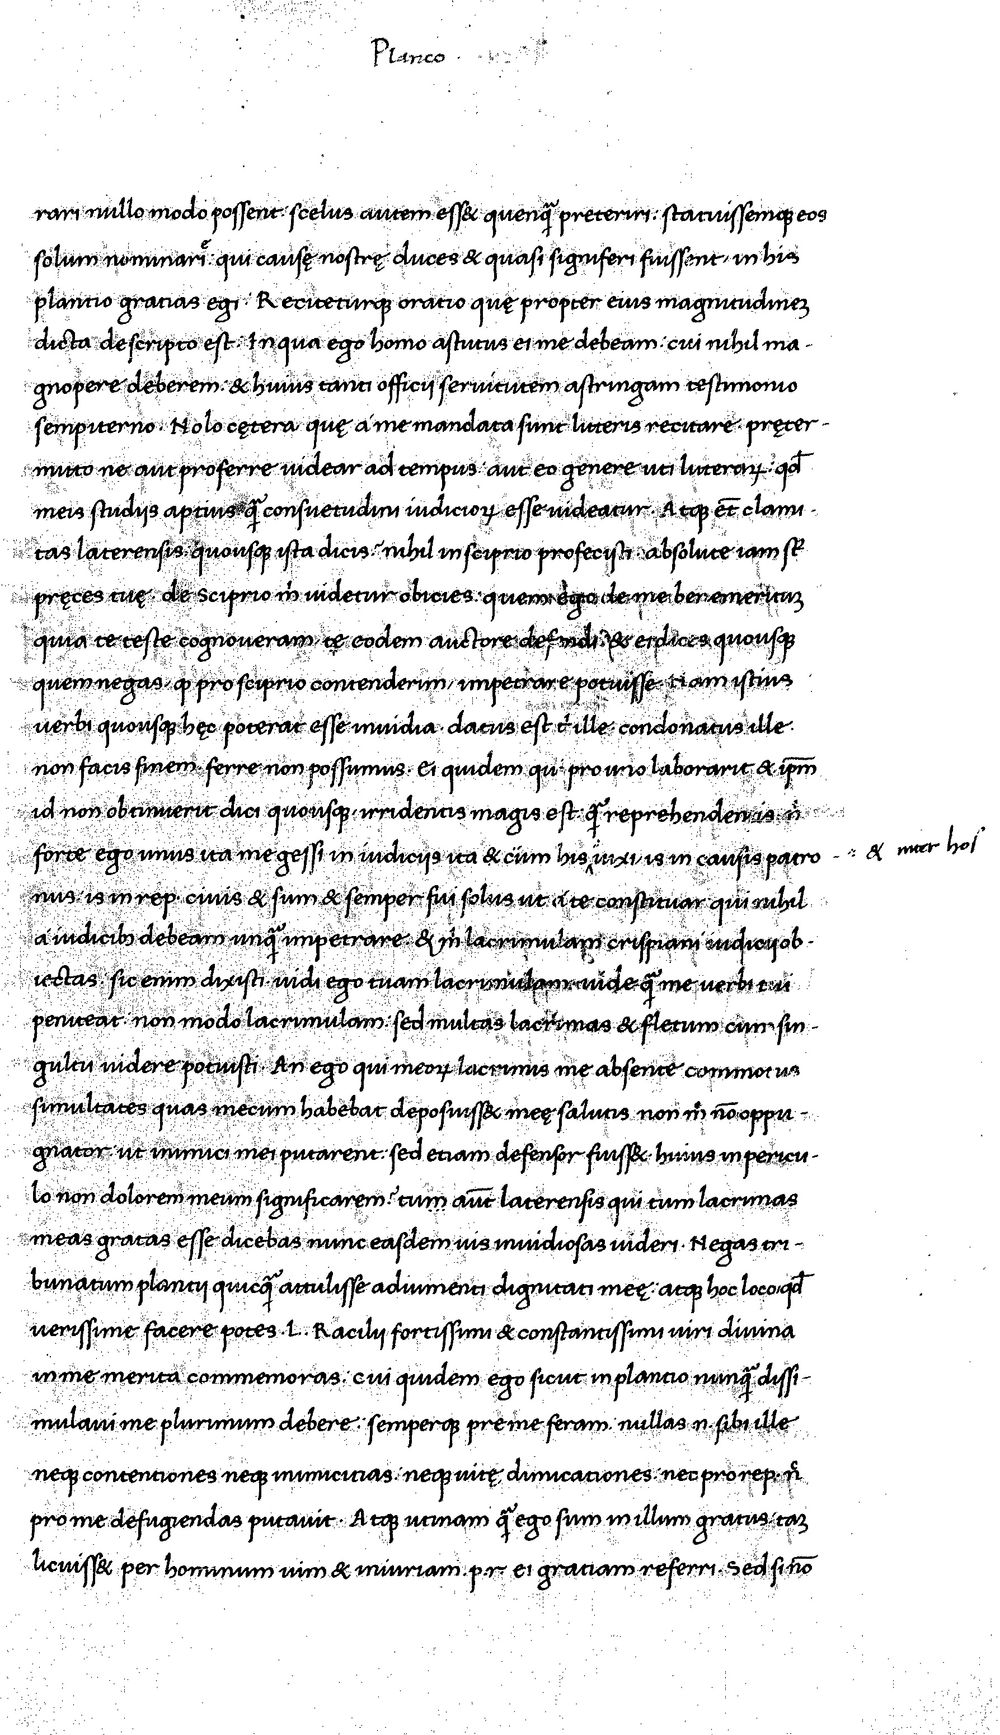 Planco
rari nullo modo possent. scelus autem ess& quenq̃ preteriri. statuissemq; eos
solum nominari. qui causę nostrę duces & quasi signiferi fuissent, in his
plancio gratias egi. Reciteturq; oratio quę propter eius magnitudinez
dicta de scripto est. In qua ego homo astutus ei me debeam. cui nihil ma-
gnopere deberem. & huius tanti officij seruitutem astringam testimonio
sempiterno. Nolo cętera quę a me mandata sunt litteris recitare. pręter-
mitto ne aut proferre uidear ad tempus. aut eo genere uti litterarꝝ. qd̃
meis studijs aptius q̃ consuetudini iudiciorꝝ esse uideatur. Atq; et̃ clami-
tas laterensis. quousq; ista dicis. nihil in sciprio profecisti. absolute iam st̃
pręces tuę. de Sciprio m̃ uidetur obicies. quem ego de me benemeritum
quia te teste cognoueram. te eodem auctore defendi. & ei dices quousq;
quem negas. ꝙ pro sciprio contenderim, impetrare potuisse. Etiam istius
uerbi quousq; hęc poterat esse inuidia. datus est t̃ ille. condonatus ille.
non facis finem. ferre non possumus. Ei quidem qui pro uno laborarit & ipm̃
id non obtinuerit dici quousq;. irridentis magis est. q̃ reprehendentis. n̂
forte ego unus ita me gessi in iudicijs ita & cum his uixi, is in causis patro - ·: & inter hos
nus. is in rep. ciuis & sum & semper fui solus ut a te constituar qui nihil
a iudicib; debeam unq̃ impetrare. & m̃ lacrimulam crispiani iudicij ob-
iectas. sic enim dixisti. uidi ego tuam lacrimulam. uide q̃ me uerbi tui
peniteat. non modo lacrimulam. sed multas lacrimas & fletum cum sin-
gultu uidere potuisti. An ego qui meorꝝ lacrimis me absente commotus
simultates quas mecum habebat deposuiss& meę salutis non m̊ no͂ oppu-
gnator. ut inimici mei putarent. sed etiam defensor fuiss& huius in pericu-
lo non dolorem meum significarem. tum aut̃ laterensis qui tum lacrimas
meas gratas esse dicebas nunc easdem uis inuidiosas uideri. Negas tri-
bunatum plancij quicq̃ attulisse adiumenti dignitati meę. atq; hoc loco. qd̃
uerissime facere potes. L. Racilij fortissimi & constantissimi uiri diuina
in me merita commemoras. cui quidem ego sicut in plancio nunq̃ dissi-
mulaui me plurimum debere. semperq; pre me feram. nullas n. sibi ille
neq; contentiones neq; inimicitias. neq; uitę dimicationes. nec pro rep. n̂
pro me defugiendas putauit. Atq; utinam q̃ ego sum in illum gratus. taz
licuiss& per hominum uim & iniuriam. p. r. ei gratiam referri. Sed si no͂